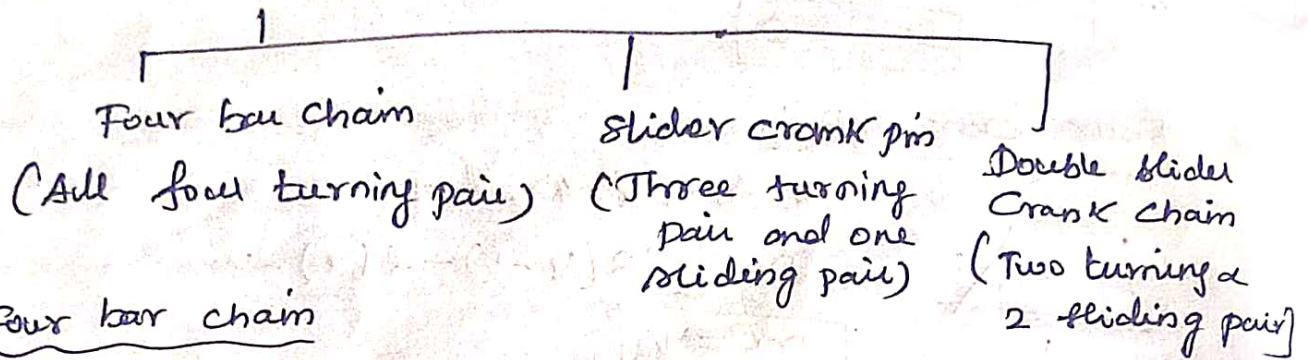 Four bar chain
(All four turning pair)
slider crank pin
(Three turning
pair and one
sliding pair)
Double slider
Crank chain
(Two turning &
2 sliding pair)
Four bar chain